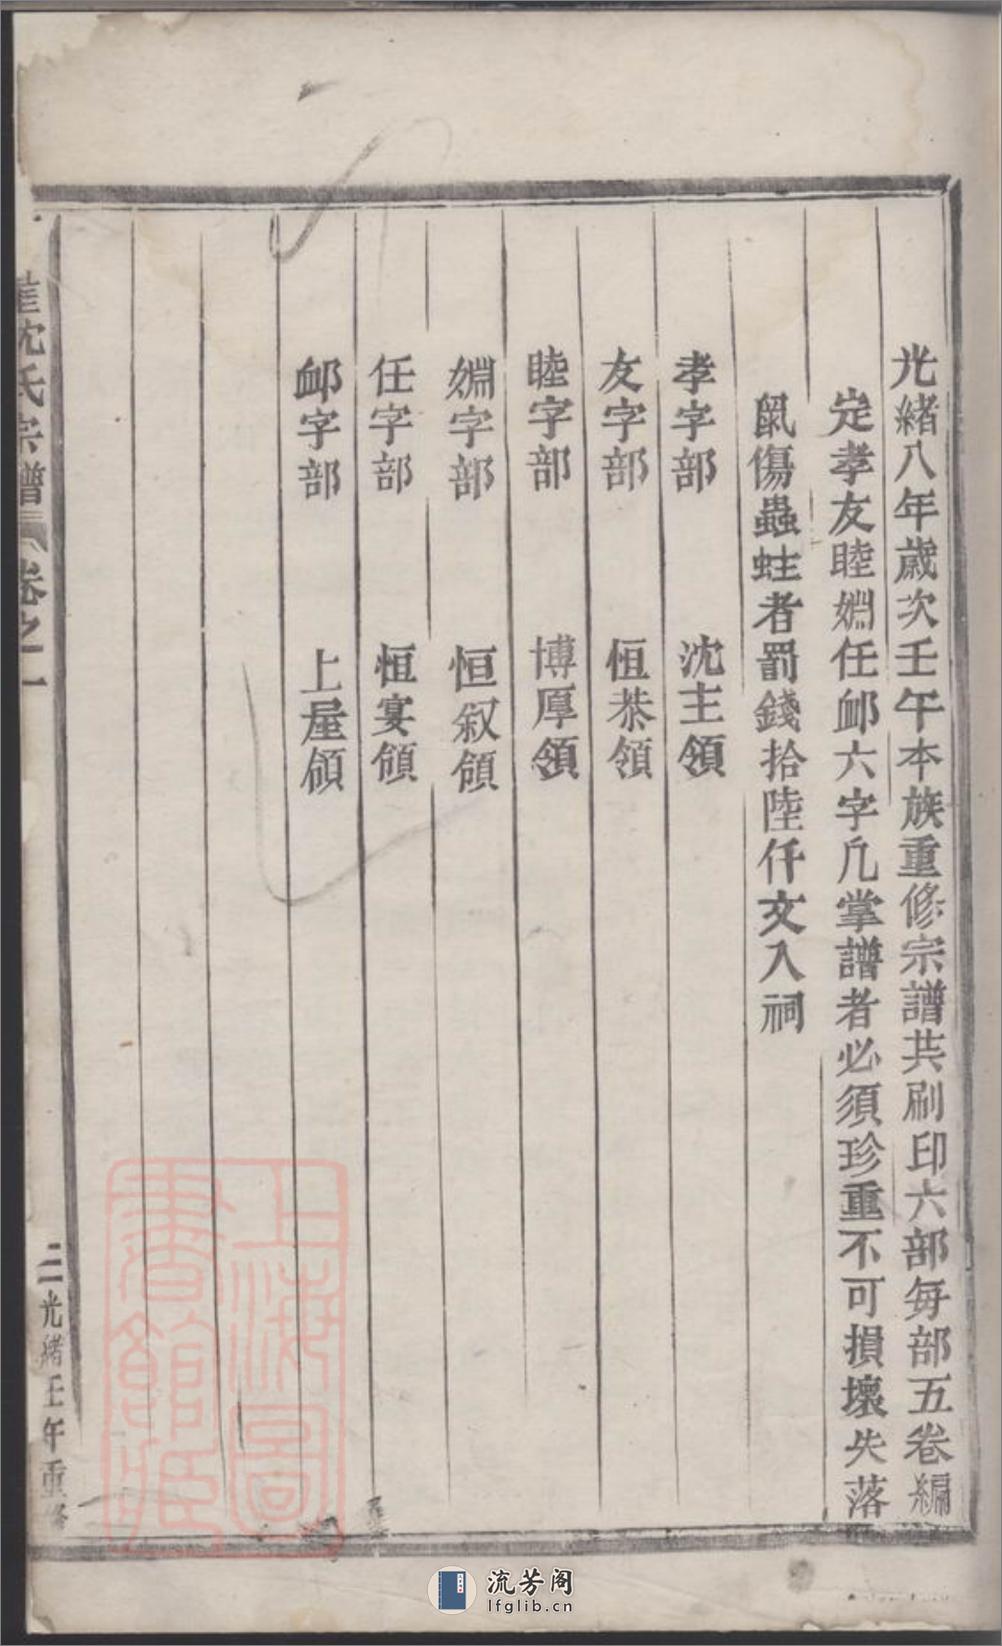 光緒八年歲次壬午本族重修宗譜共刷印六部每部五卷編
定孝友睦婣任卹六字凡掌譜者必須珍重不可損壞失落
鼠傷蟲蛀者罰錢拾陸仟文入祠
孝字部 沈主領
友字部 恒恭領
睦字部 博厚領
婣字部 恒叙領
任字部 恒宴領
卹字部 上屋領
沈氏宗譜 卷之一
三 光緒壬午重修
上海圖
書館藏
流芳阁
lfglib.cn